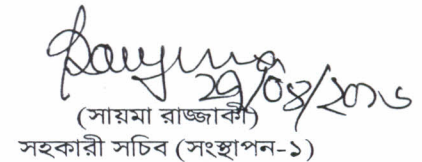 Sayma
২৭/০৪/২০১৬
(সায়মা রাজ্জাকী)
সহকারী সচিব (সংস্থাপন-১)